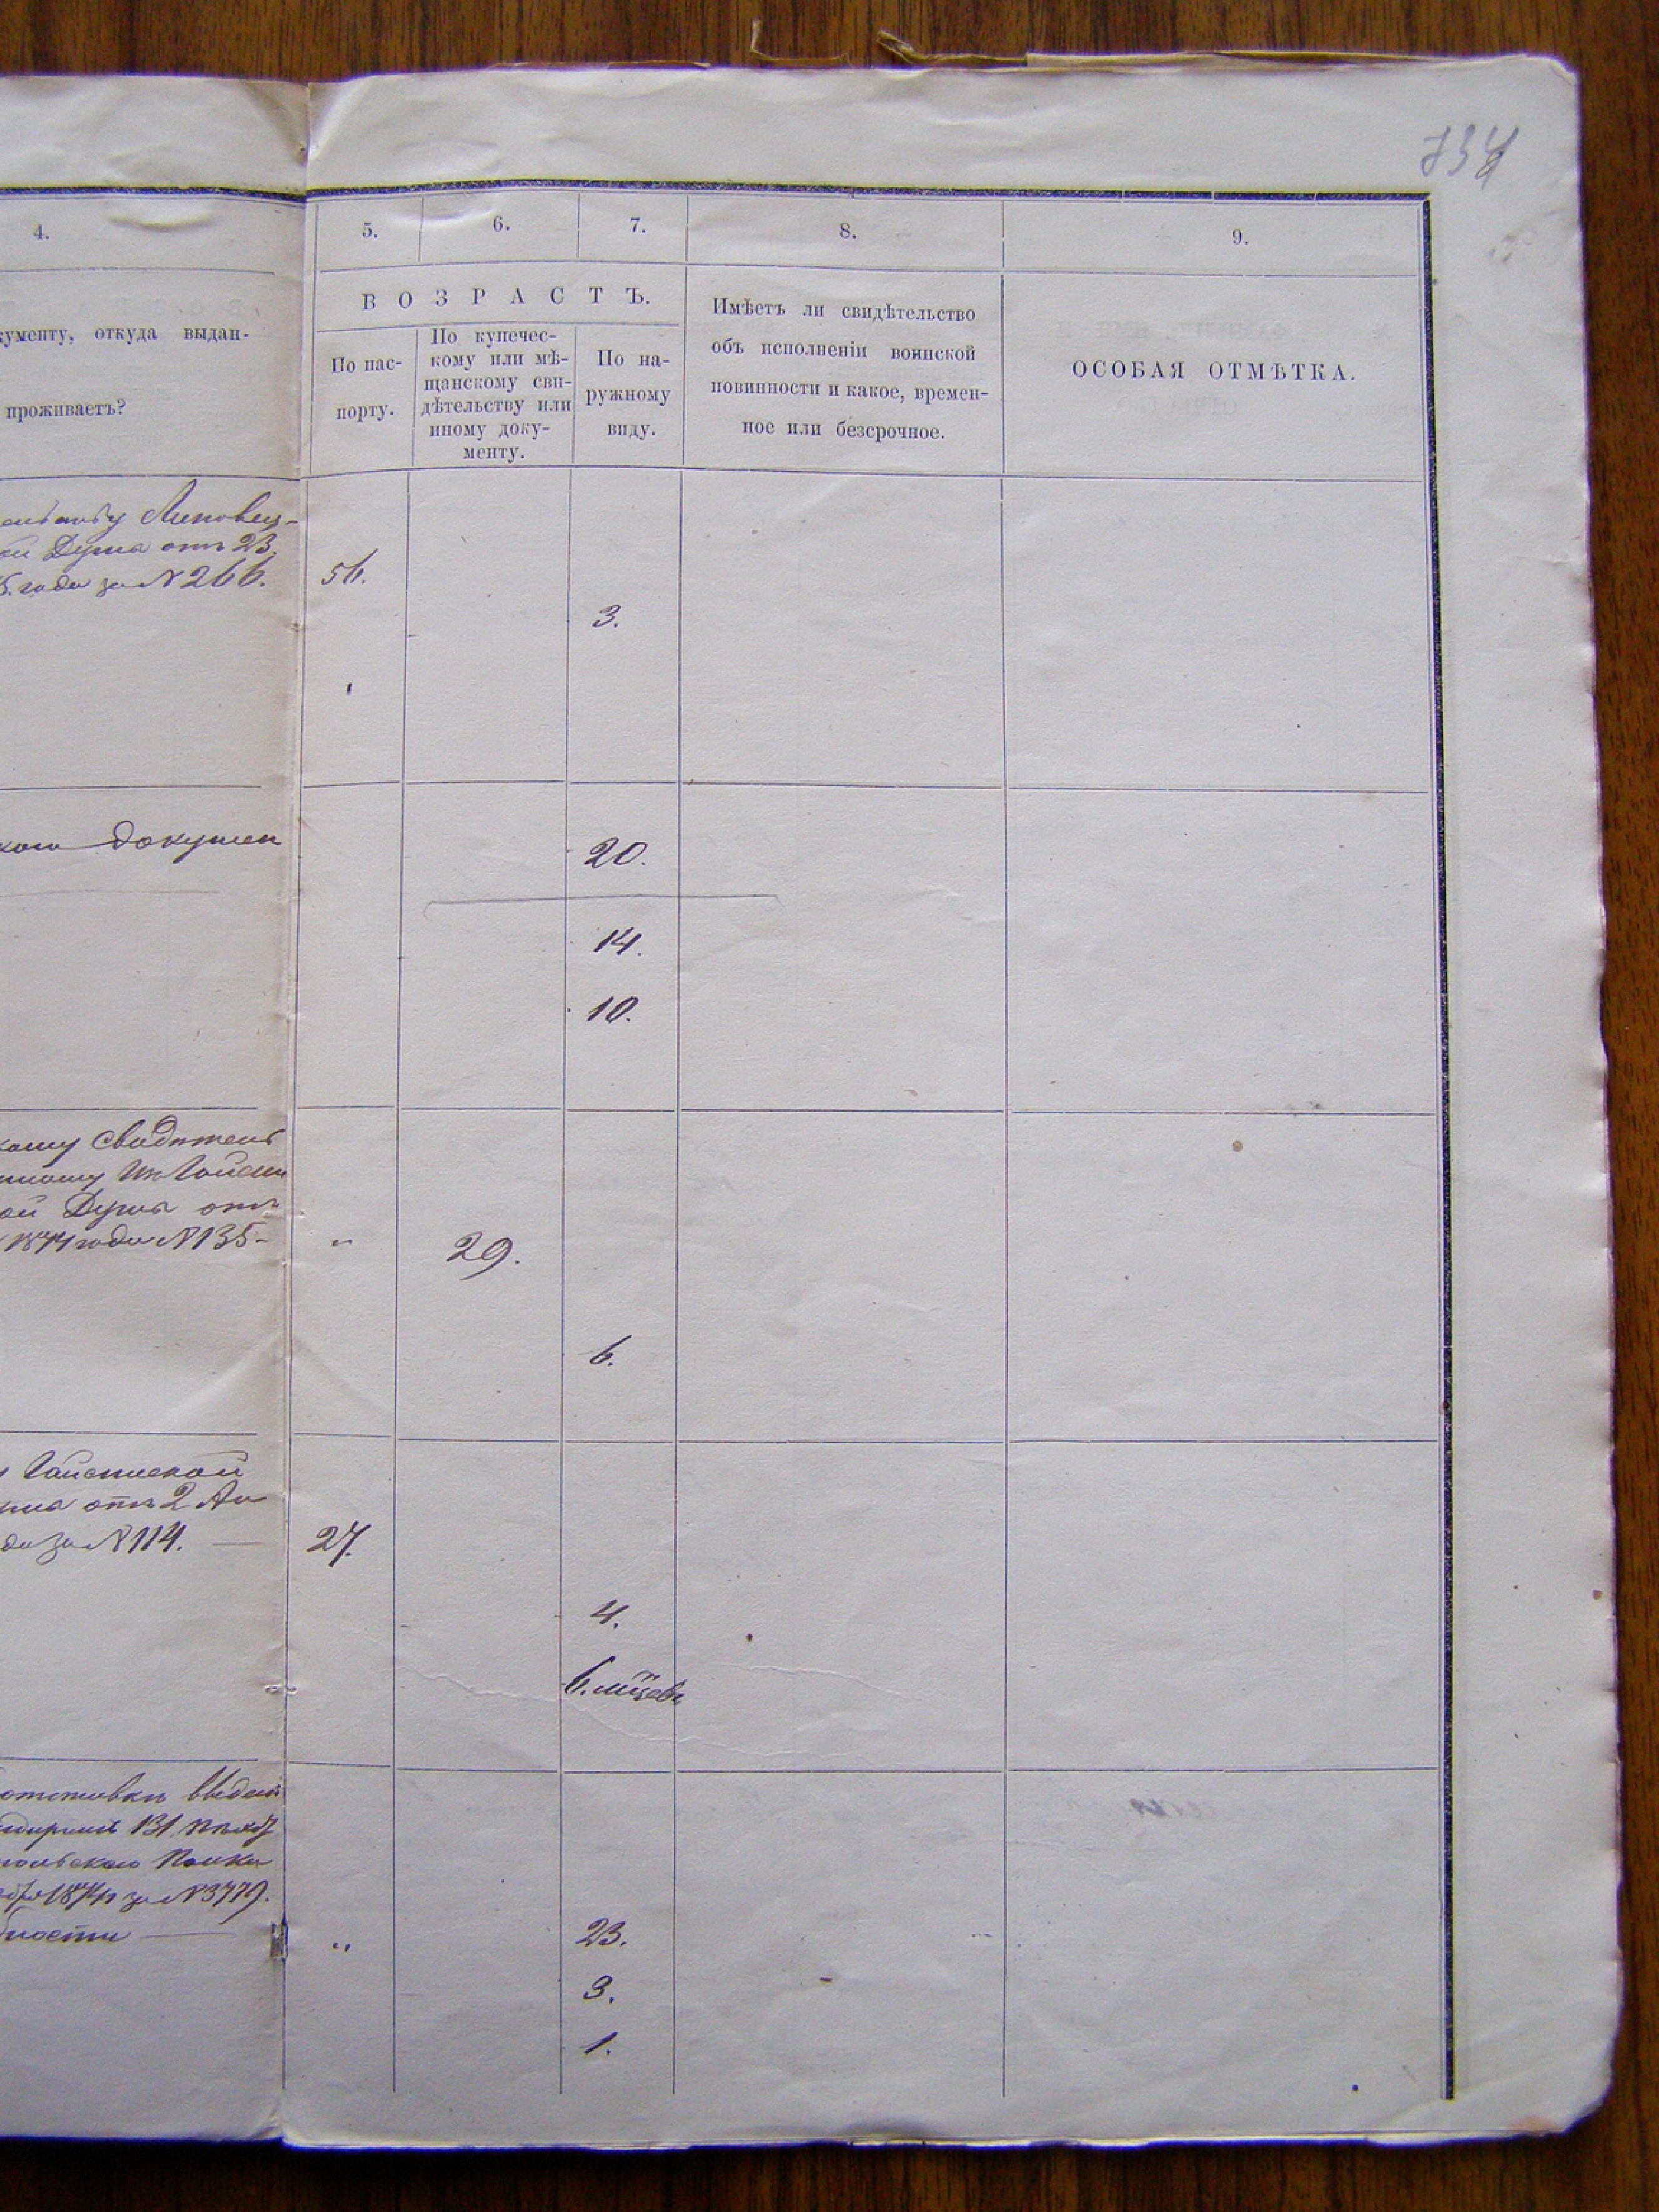 734
4. 5. 6. 7. 8. 9.
ВОЗРАСТЪ.
кументу, откуда выдан-
проживаетъ?
По пас-
порту.
По купечес-
кому или мѣ-
щанскому сви-
дѣтельству или
иному доку-
менту.
По на-
ружному
виду.
Имѣетъ ли свидѣтельство
объ исполненіи воинской
повинности и какое, времен-
ное или безсрочное.
ОСОБАЯ ОТМѢТКА.
Липовец-
Дума отъ 23
года за N 266. 56.
3.
докумен 20.
14.
10.
кому свидѣтель
ой Думы отъ
1874 года N 135- " 29.
6.
Гайсинской
отъ 2 Ап
да за N 114. — 27.
4.
6. мѣсяц
131
полка
1874 за N 3779.
ности — " 23.
3.
1.